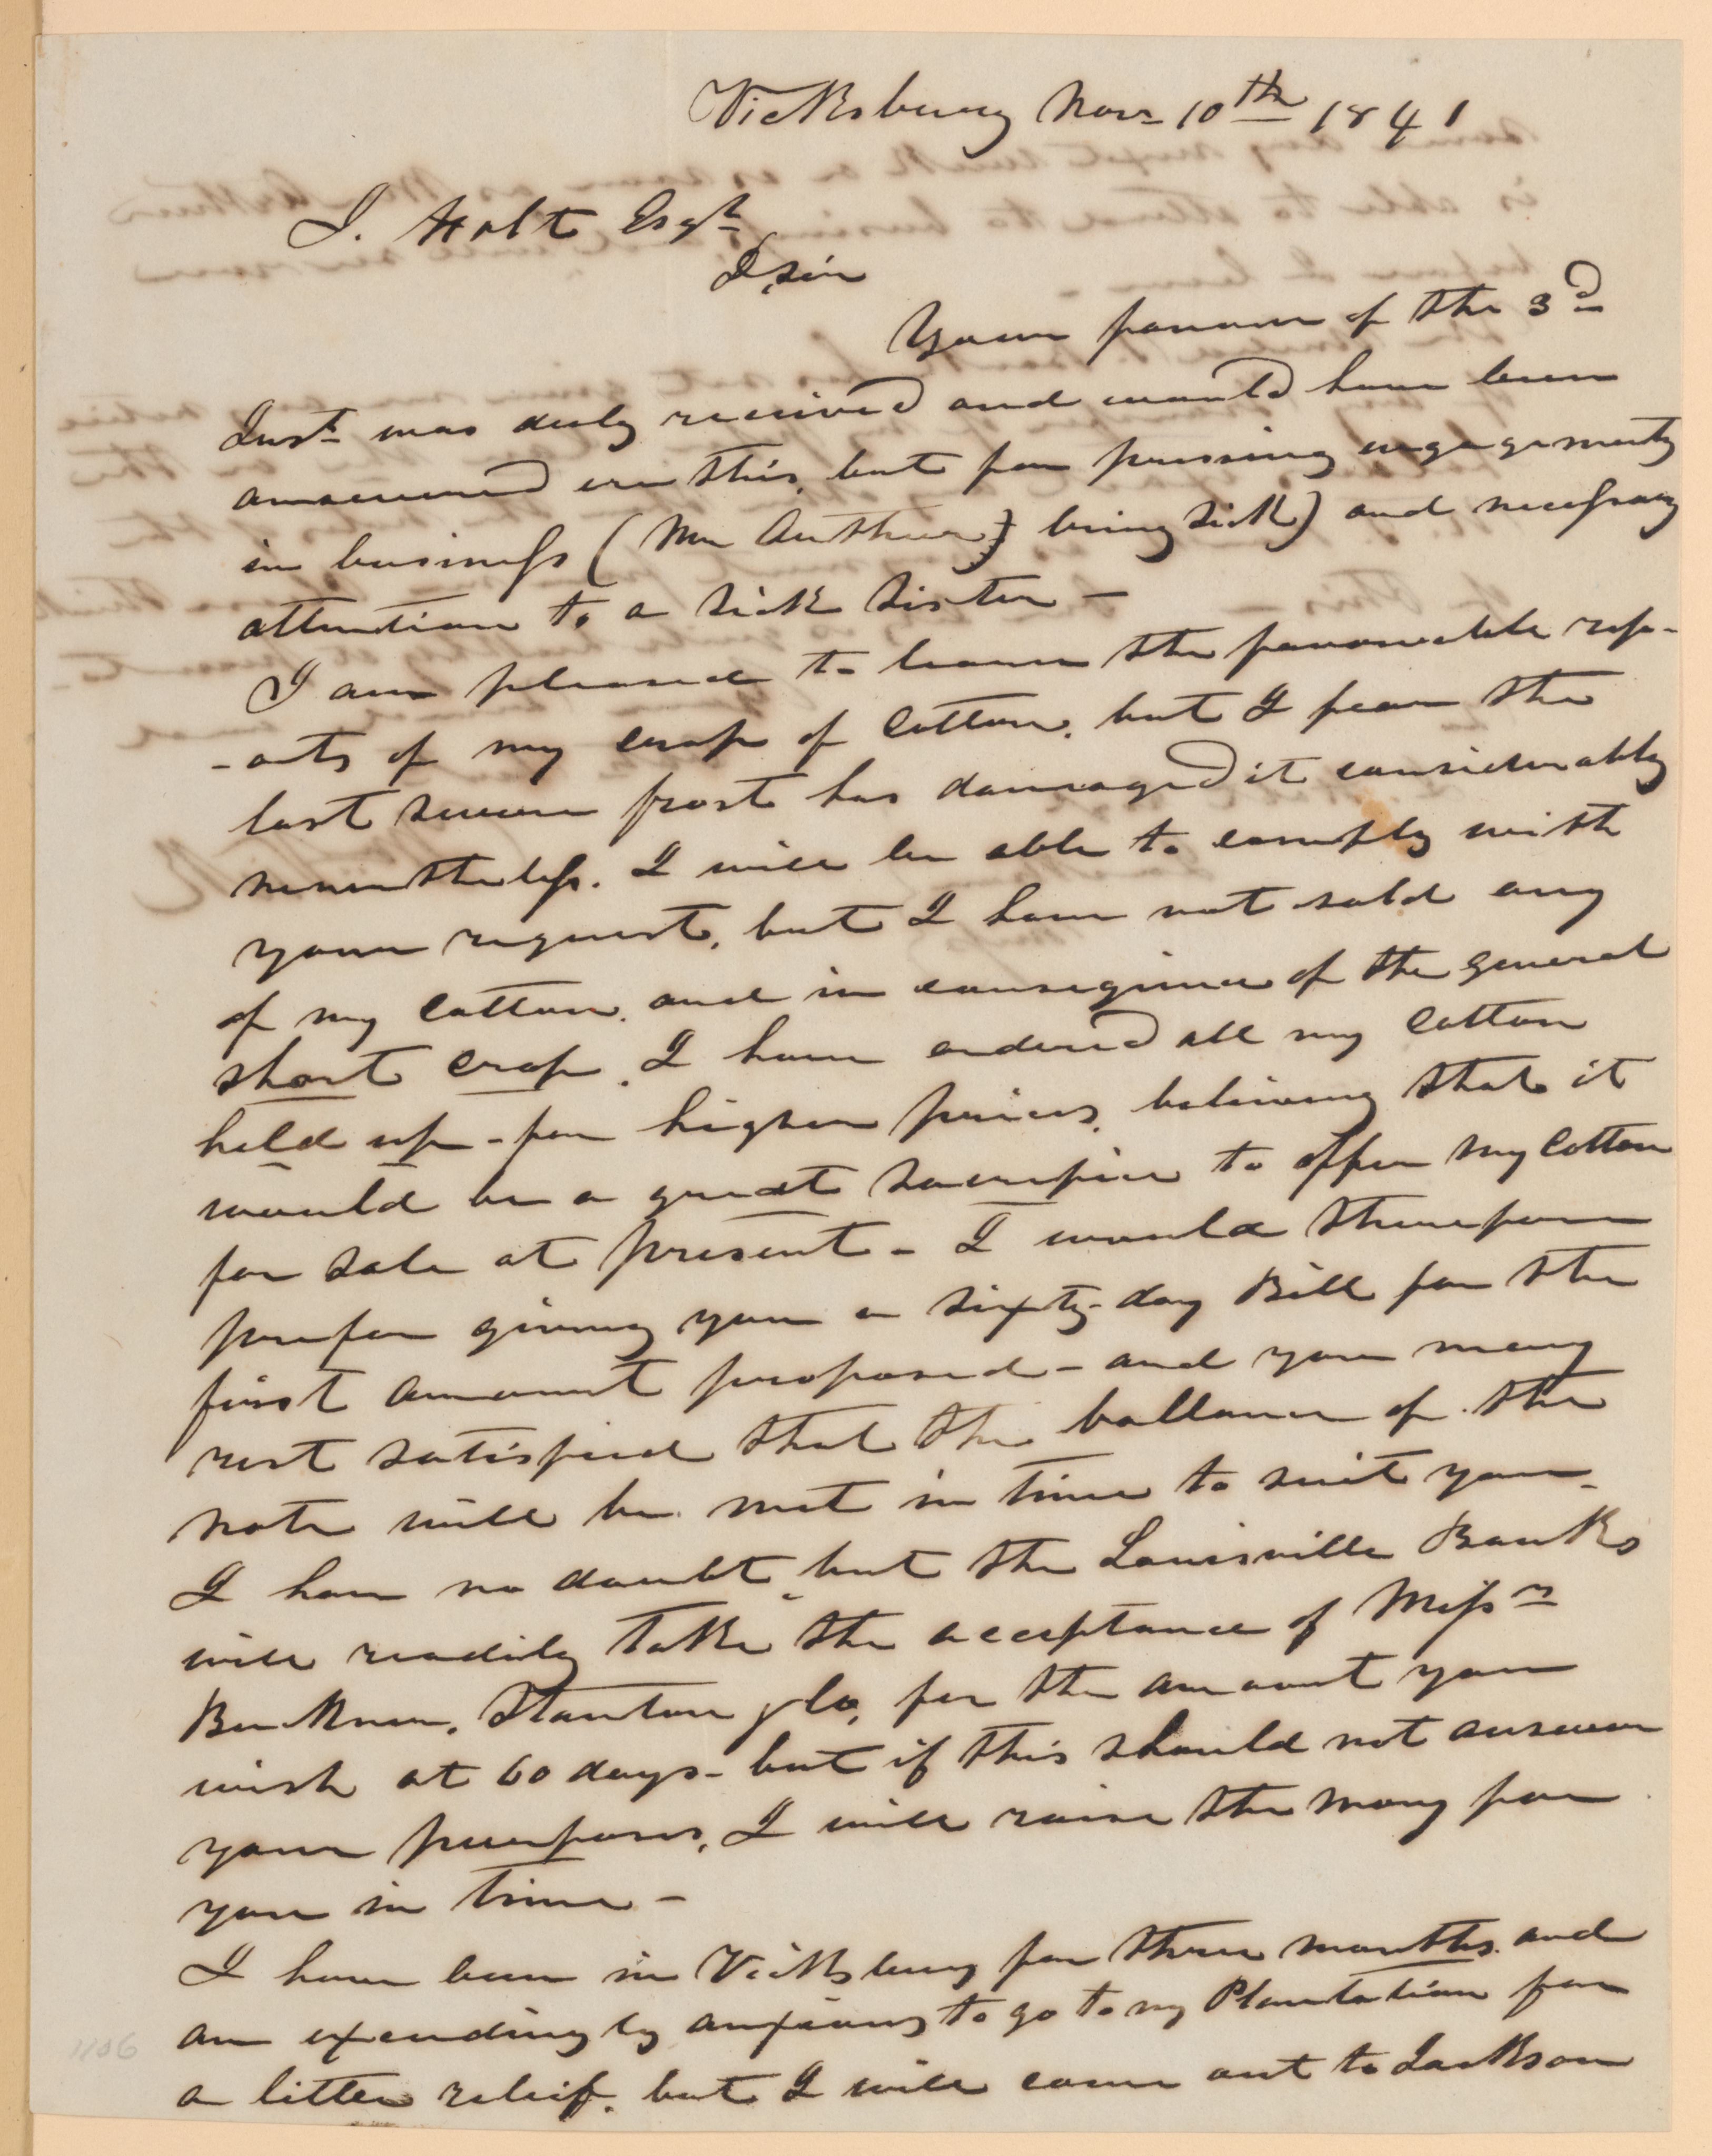 Vicksburg Nov. 10th 1841
J. Holt Esqr
D, sir
Your favour of the 3d
Inst was duly received and would have been
answered ere this, but for pressing engagements
in business (Mr Arthur) being sick) and necessary
attention to a sick sister –
I am pleased to learn the favourable rep-
-orts of my crop of Cotton, but I fear the
last severe frost has damaged it considerably
nevertheless. I will be able to comply with
your request, but I have not sold any
of my Cotton, and in consequence of the general
short crop, I have ordered all my Cotton
held up – for higher prices, believing that it
would be a great sacrifice to offer my Cotton
for sale at present – I would therefore
prefer giving you a sixty-day Bill for the
first amount proposed – and you may
rest satisfied that the ballance of the
note will be met in time to suit you –
I have no doubt, but the Louisville Banks
will readily take the acceptance of Messrs
Buckner, Stanton & Co, for the amount you
wish at 60 days – but if this should not answer
your purposes, I will raise the mony for
you in time –
I have been in Vicksburg for three months and
am exceedingly anxious to go to my Plantation for
a littel releif, but I will come out to Jackson
1106